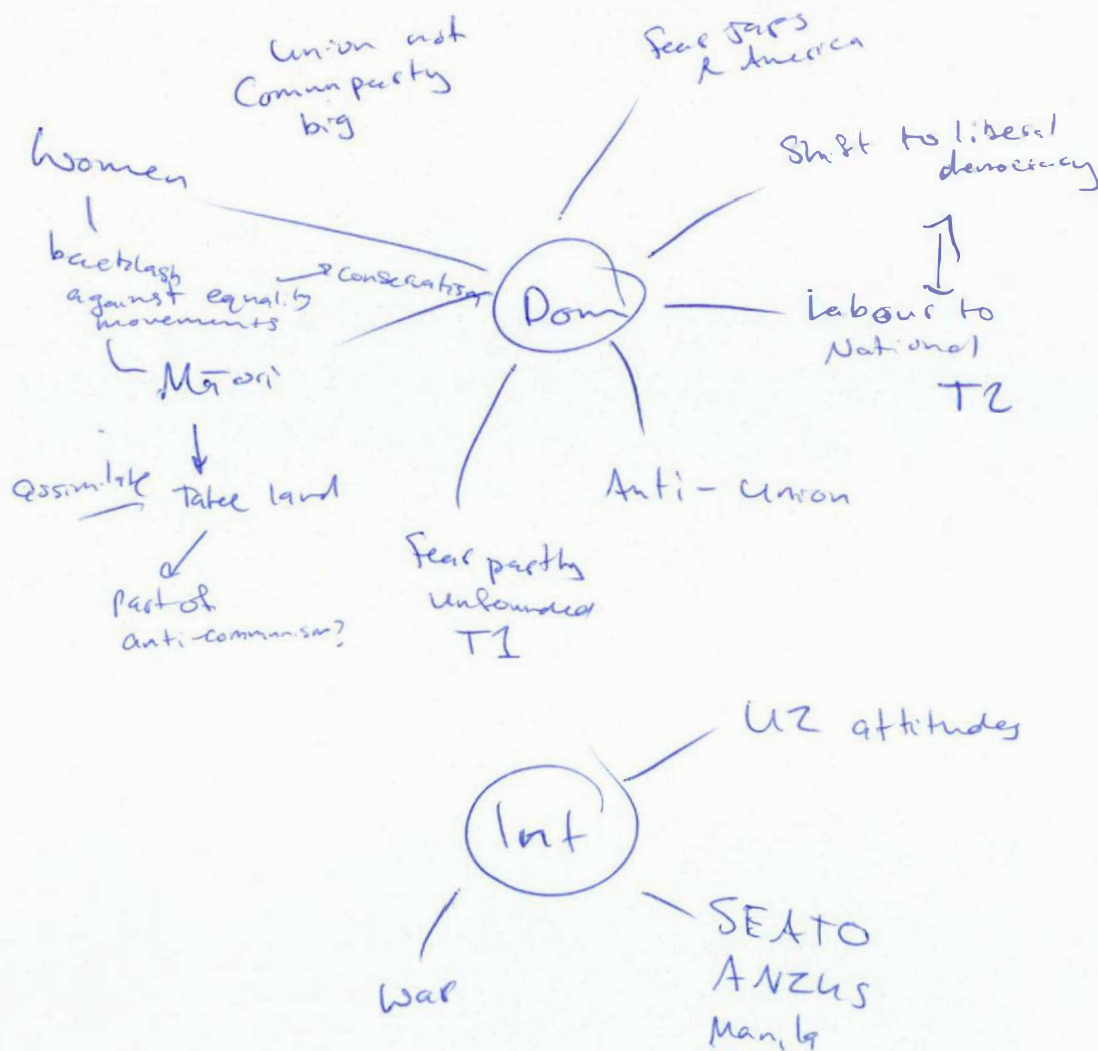 Union not
Commun party
big
Fear Japs
& America
Women
Shift to liberal
democracy
backlash
against equality
movements
conservatism
Dom
Labour to
National
T2
Māori
assimilate
Take land
Anti-union
Part of
anti-communism?
Fear partly
unfounded
T1
NZ attitudes
Int
War
SEATO
ANZUS
Manila